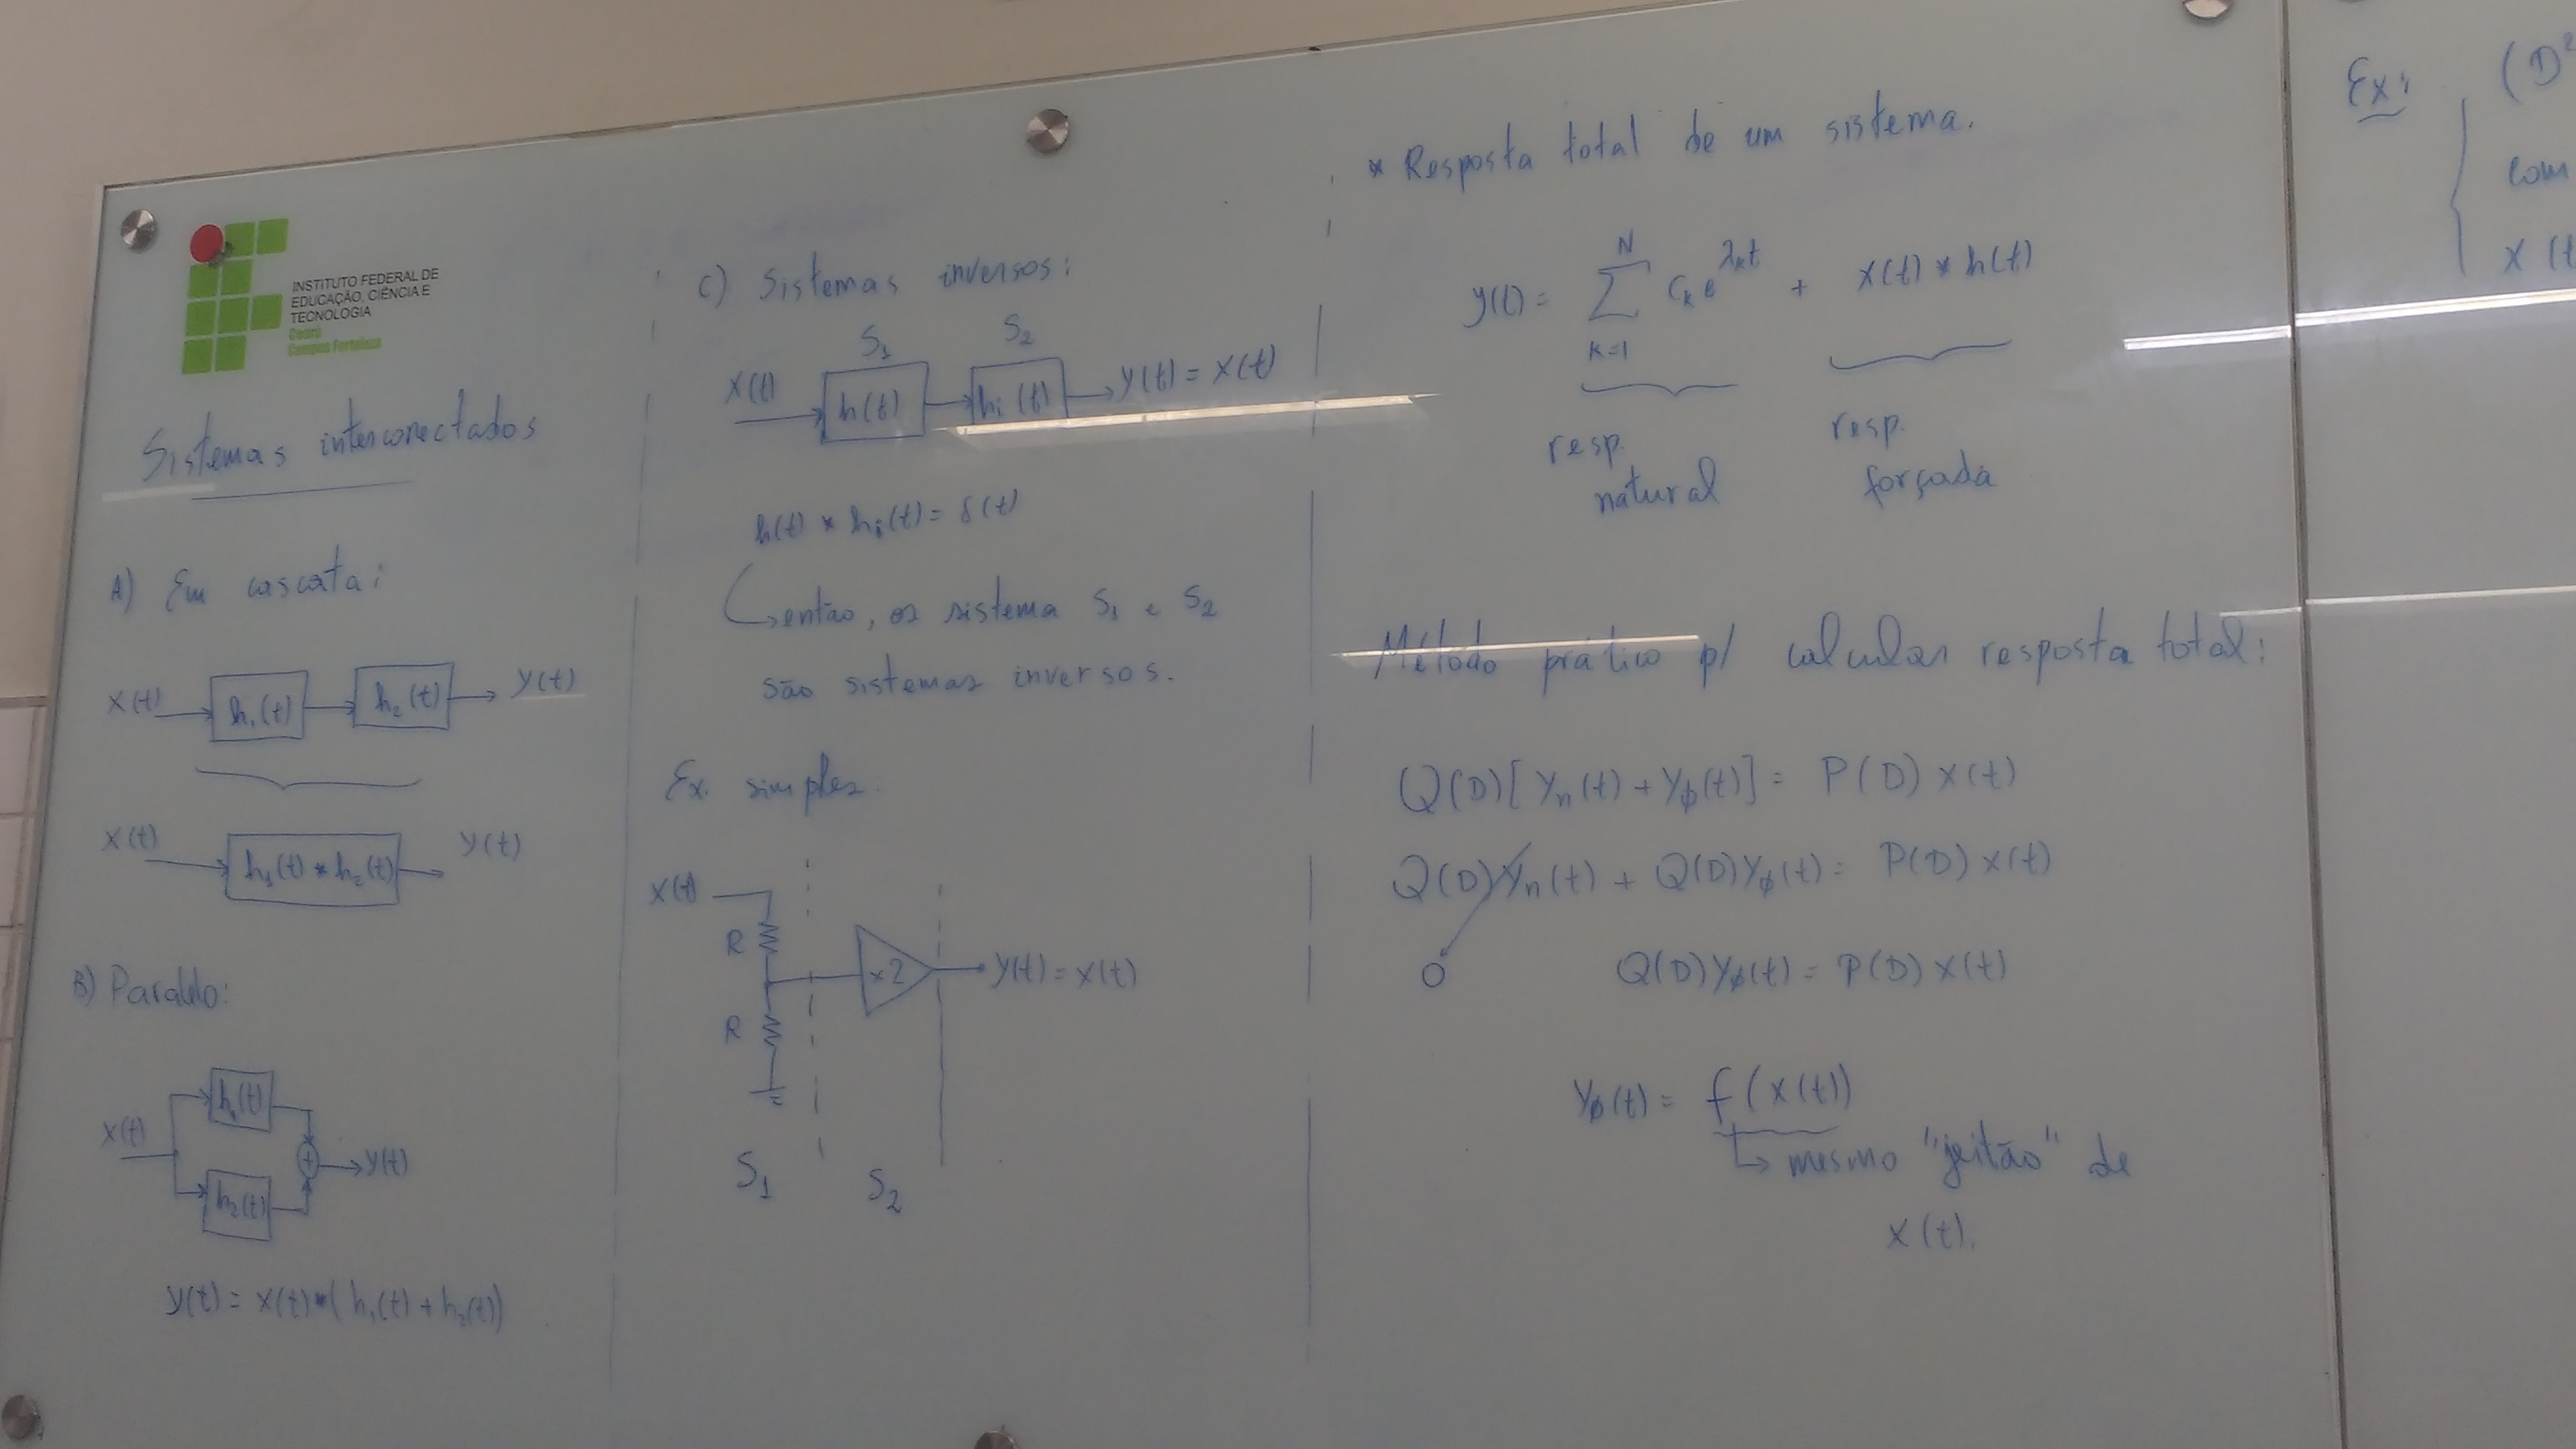 INSTITUTO FEDERAL DE
EDUCAÇÃO, CIÊNCIA E
TECNOLOGIA
Ceará
Campus Fortaleza
Sistemas interconectados
A) Em cascata:
x(t) h₁(t) h₂(t) y(t)
x(t) h₁(t) * h₂(t) y(t)
B) Paralelo:
h₁(t)
x(t) + y(t)
h₂(t)
y(t) = x(t) * (h₁(t) + h₂(t))
C) Sistemas inversos:
S₁ S₂
x(t) h(t) hᵢ(t) y(t) = x(t)
h(t) * hᵢ(t) = δ(t)
então, os sistema S₁ e S₂
são sistemas inversos.
Ex. simples.
x(t)
R
x2 y(t) = x(t)
R
S₁ S₂
* Resposta total de um sistema.
N
y(t) = Σ Cₖ e^λₖt + x(t) * h(t)
K=1
resp. natural
resp. forçada
Método prático p/ calcular resposta total:
Q(D)[yₙ(t) + yφ(t)] = P(D) x(t)
Q(D)yₙ(t) + Q(D)yφ(t) = P(D) x(t)
0 Q(D)yφ(t) = P(D) x(t)
yφ(t) = f(x(t))
mesmo "jeitão" de
x(t).
Ex: (D²
com
x(t